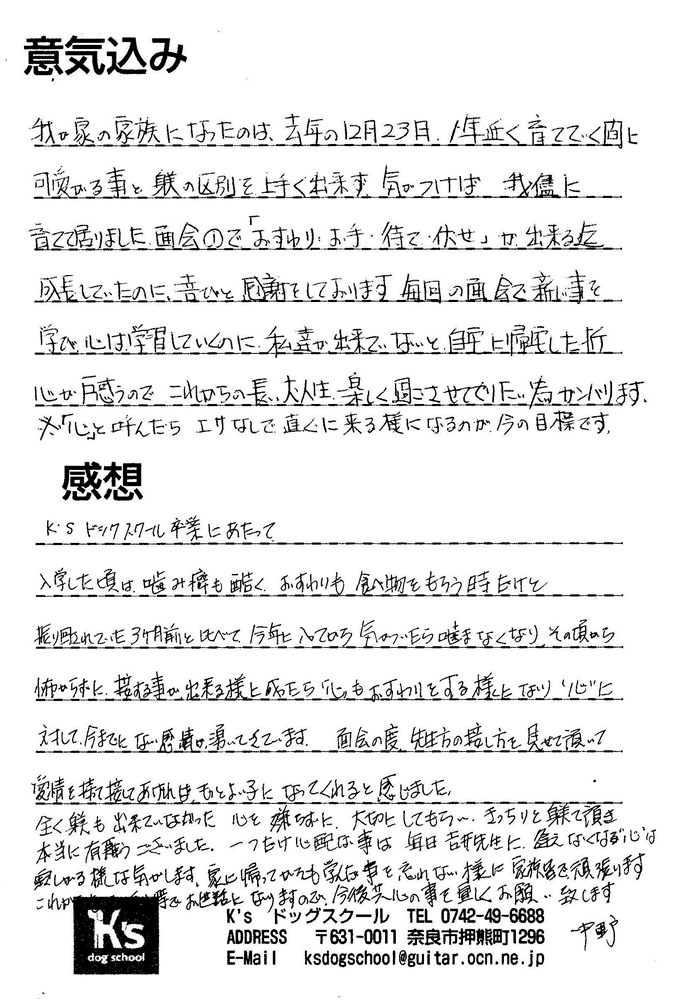 意気込み
我が家の家族になったのは、去年の12月23日、1年近く育てていく間に
可愛がる事と躾の区別を上手く出来ず、気がつけば 我儘に
育てて居りました。面会ので「おすわり・お手・待て・伏せ」が出来る迄
成長していたのに、喜びと感謝をしております。毎回の面会で新しい事を
学び、心は学習していくのに、私達が出来ていないと、自宅に帰宅した折
心が戸惑うので これからの長い犬人生、楽しく過ごさせてやりたい為ガンバリます。
※「心」と呼んだら エサなしで直ぐに来る様になるのが、今の目標です。
感想
K'S ドックスクール卒業にあたって
入学した頃は、噛み癖も酷く、おすわりも 食べ物をもらう時だけと
振り回されていた3ヶ月前と比べて、今年に入ってから 気がついたら噛まなくなり、その頃から
怖がらずに、接する事が出来る様に成ったら「心」もおすわりをする様になり "心"に
対して、今までにない感情が湧いてきています。 面会の度、先生方の接し方を見せて頂いて
愛情を持て接してあげれば、もっとよい子になってくれると感じました。
全く躾も出来ていなかった 心を 嫌らずに、大切にしてもらい、きっちりと躾て頂き
本当に有難うございました。一つだけ心配な事は 毎日 吉井先生に、逢えなくなる「心」は
寂しがる様な気がします。家に帰ってからも学んだ事を忘れない様に 家族皆で頑張ります
これからも お世話になりますので、今後共心の事を宜しくお願い致します
中野
K's dog school
K's ドッグスクール TEL 0742-49-6688
ADDRESS 〒631-0011 奈良市押熊町1296
E-Mail ksdogschool@guitar.ocn.ne.jp